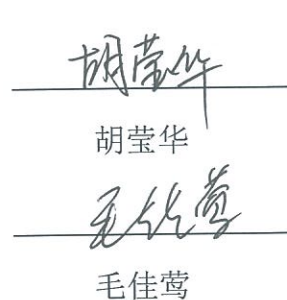 胡莹华
胡莹华
毛佳莺
毛佳莺